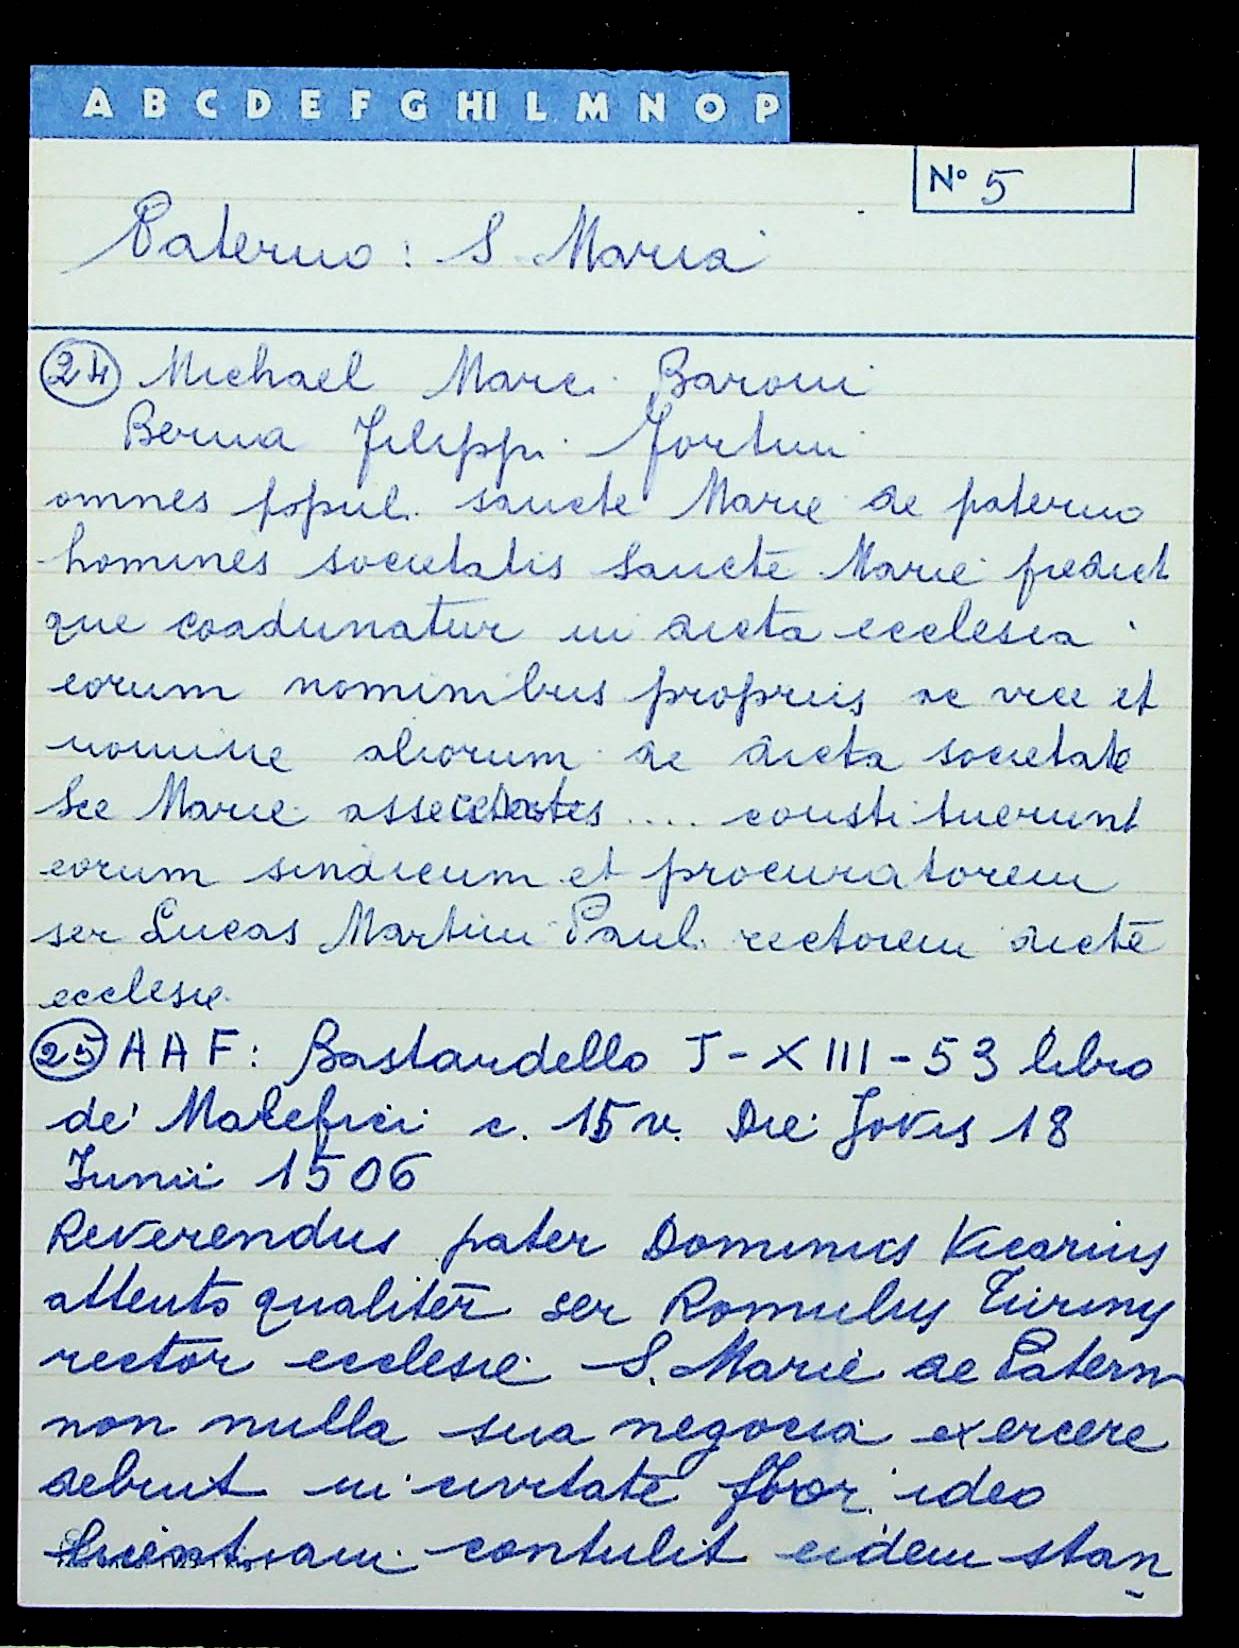 A B C D E F G HI L M N O P
N° 5
Paterno: S. Maria
24 Michael Marci Baroni
Berna Filippi Fortini
omnes popul. sancte Marie de paterno
homines societatis Sancte Marie predict
que coadunatur in dicta ecclesia
eorum nominibus propriis ac vice et
nomine aliorum de dicta societate
Sce Marie .... constituerunt
eorum sindicum et procuratorem
ser Lucas Martini Pauli rectorem dicte
ecclesie.
25 AAF: Bastardello J-XIII-53 libro
de' Malefici c. 15 v. Die Jovis 18
Junii 1506
Reverendus pater Dominus Vicarius
attento qualiter ser Romulus Turinus
rector ecclesie S. Marie de Patern
non nulla sua negocia exercere
debuit in civitate flor. ideo
licentiam contulit eidem stan